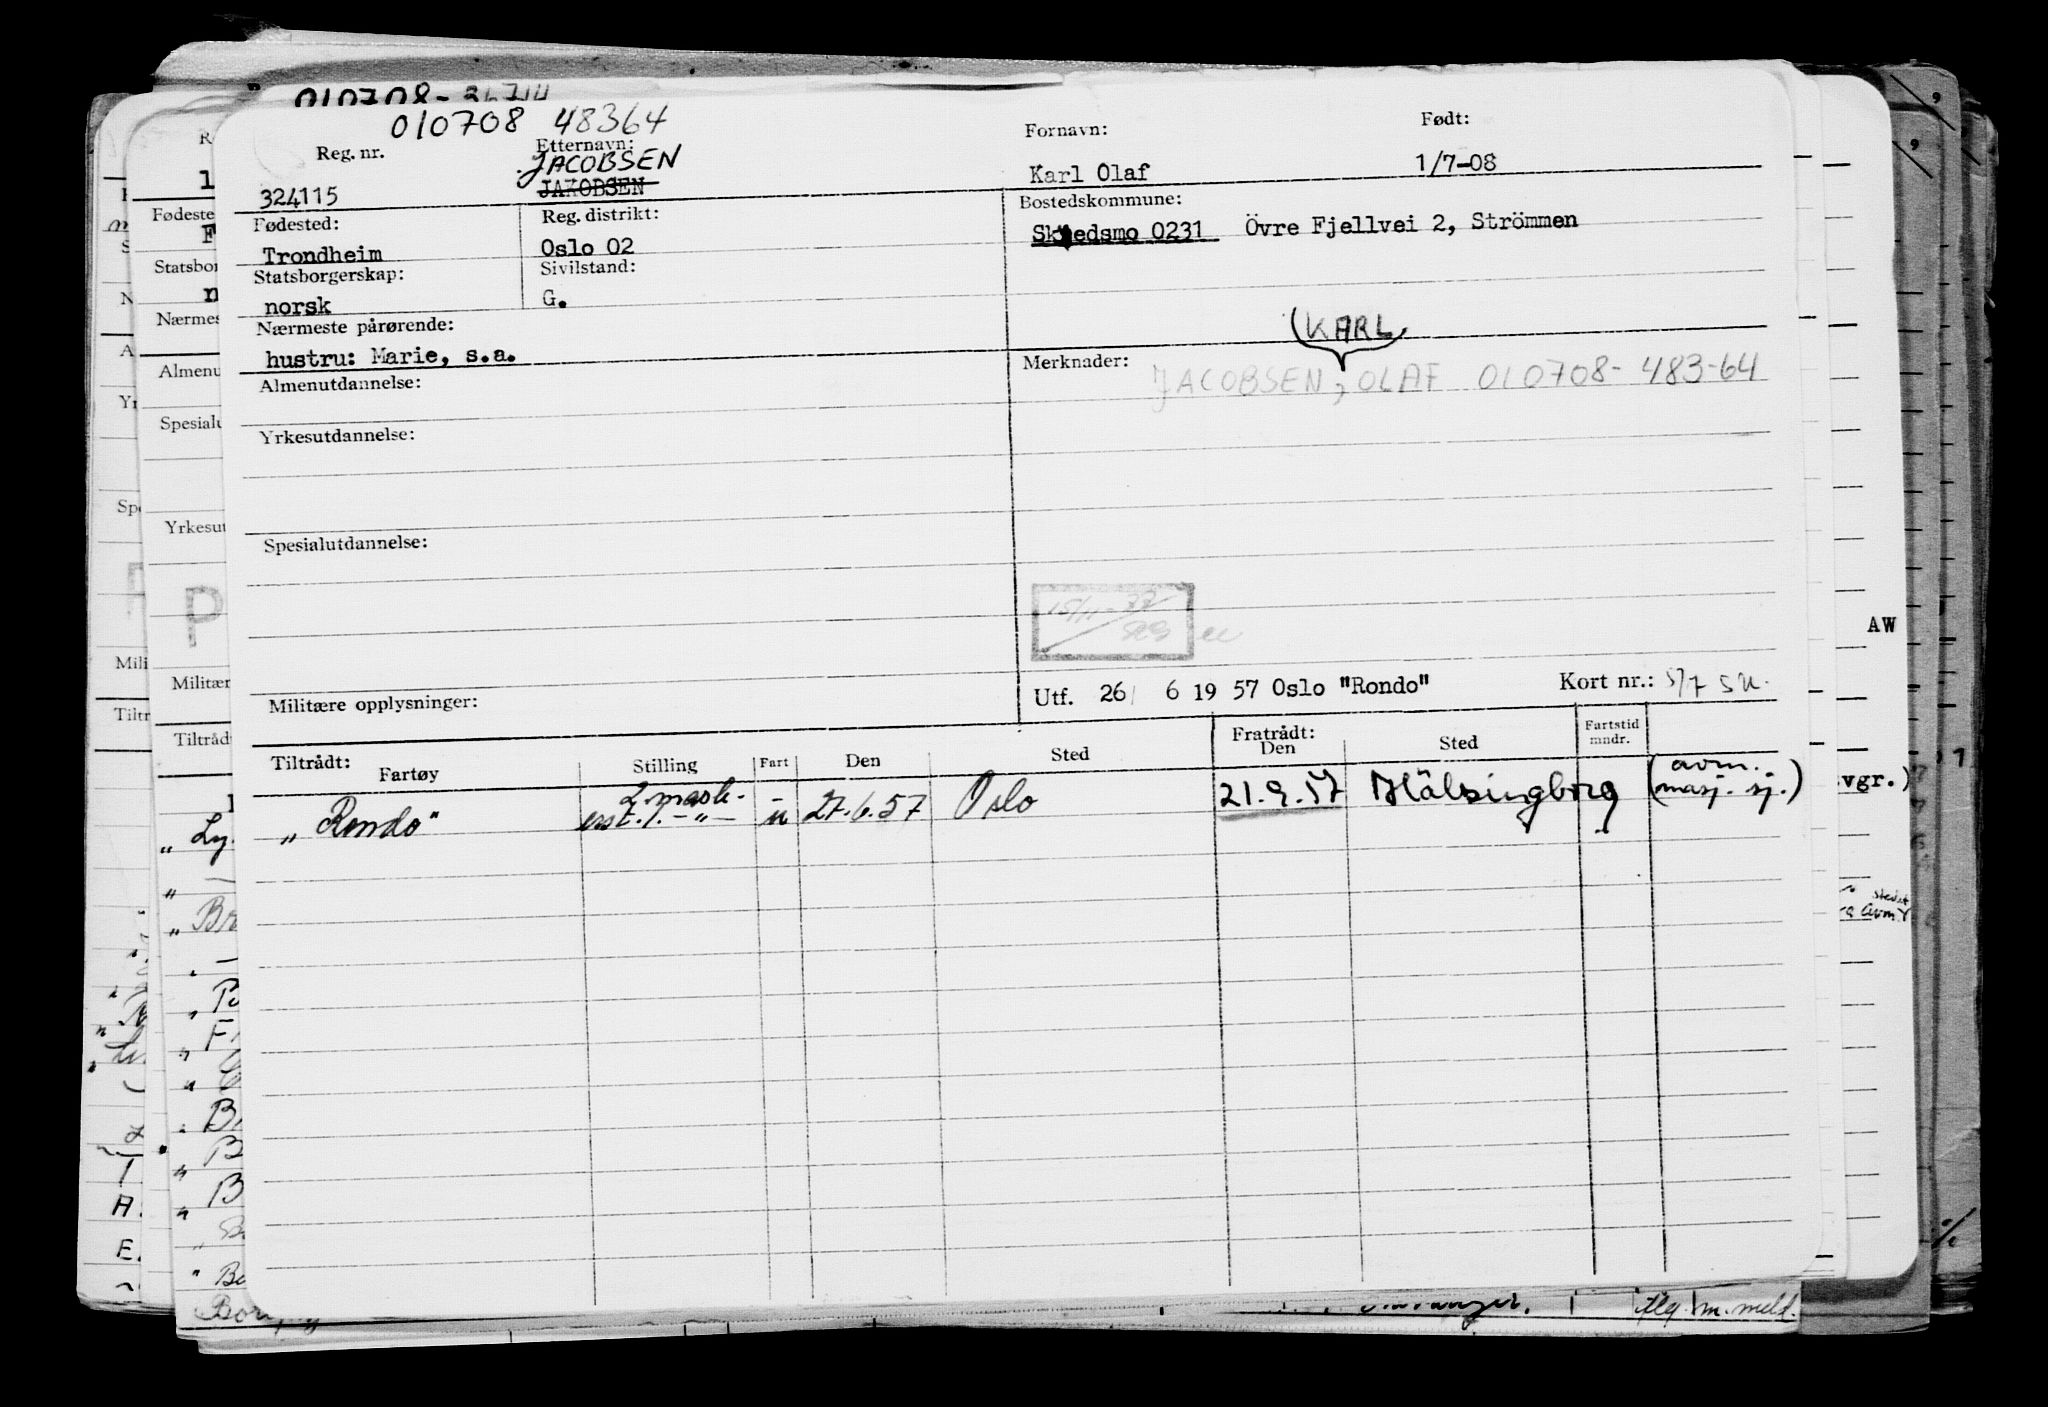 010708-
010708 48364
Reg. nr. Etternavn: Fornavn: Født:
JACOBSEN
324115 JAKOBSEN Karl Olaf 1/7-08
Fødested: Reg. distrikt: Bostedskommune:
Trondheim Oslo 02 Skjedsmo 0231 Övre Fjellvei 2, Strömmen
Statsborgerskap: Sivilstand:
norsk G.
Nærmeste pårørende: (KARL)
hustru: Marie, s.a. Merknader: JACOBSEN, OLAF 010708- 483-64
Almenutdannelse:
Yrkesutdannelse:
Spesialutdannelse:
15/11-77
Militære opplysninger: Utf. 26/ 6 19 57 Oslo "Rondo" Kort nr.: 5/7 su.
Tiltrådt: Fratrådt:
Fartøy Stilling Fart Den Sted Den Sted Fartstid mndr.
2. mask. (avm.
„Rondo" ass t. f. -"- u 27.6.57 Oslo 21.9.57 Hälsingborg masj. sj.)
AW
vgr.)
avm.
flg. m. meld.